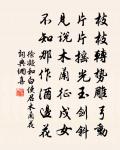 枝枝轉勢雕弓動
片片搖光玉劍斜
見說木蘭征戍女
不知那作酒邊花
徐凝和白使君木蘭花